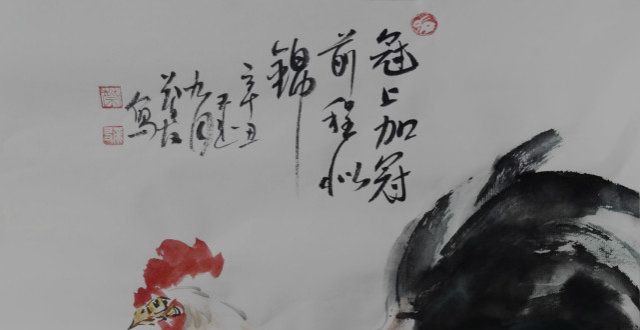 冠上加冠
前程似
錦
辛丑
九月
寫